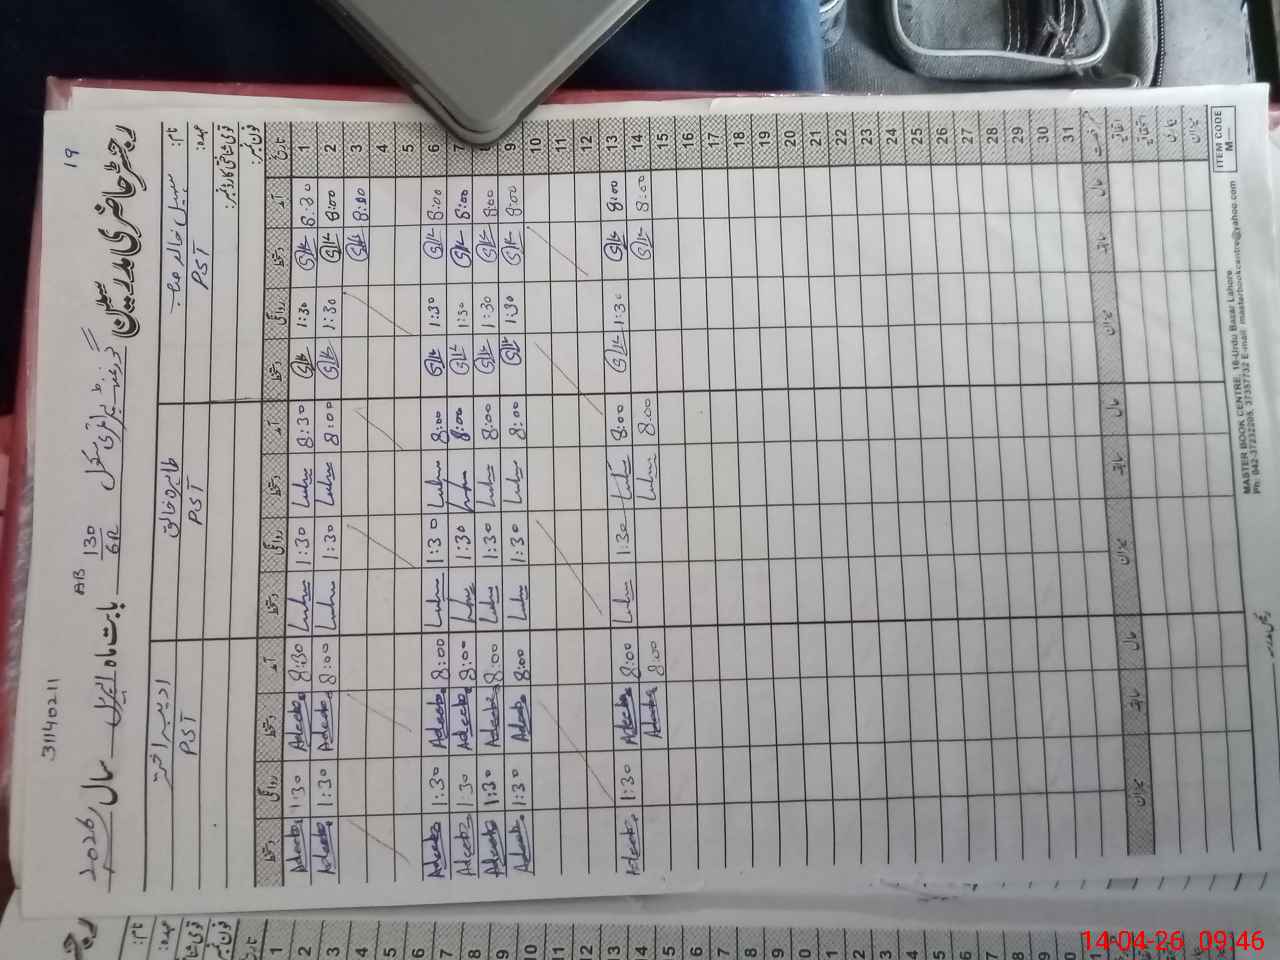 19
31140211
رجسٹر حاضری مدرسین گورنمنٹ پرائمری سکول 130/6R AB بابت ماہ اپریل سال 2026
نام: سہیل خالد صاحب طاہرہ خالق ادیبہ اختر
عہدہ: PST PST PST
قومی شناختی کارڈ نمبر:
فون نمبر:
تاریخ آمد دستخط روانگی دستخط آمد دستخط روانگی دستخط آمد دستخط روانگی دستخط
1 8:30 1:30 8:30 1:30 8:30 Adeeba 1:30 Adeeba
2 8:00 1:30 8:00 1:30 8:00 Adeeba 1:30 Adeeba
3 8:00
4
5
6 8:00 1:30 8:00 1:30 8:00 Adeeba 1:30 Adeeba
7 8:00 1:30 8:00 1:30 8:00 Adeeba 1:30 Adeeba
8 8:00 1:30 8:00 1:30 8:00 Adeeba 1:30 Adeeba
9 8:00 1:30 8:00 1:30 8:00 Adeeba 1:30 Adeeba
10
11
12
13 8:00 1:30 8:00 1:30 8:00 Adeeba 1:30 Adeeba
14 8:00 8:00 8:00 Adeeba
15
16
17
18
19
20
21
22
23
24
25
26
27
28
29
30
31
قسم رخصت حال سابقہ میزان حال سابقہ میزان حال سابقہ میزان
اتفاقیہ
استحقاقیہ
بیماری
میزان
ITEM CODE
M—
MASTER BOOK CENTRE, 18-Urdu Bazar Lahore.
Ph: 042-37232205, 37357732 E-mail: masterbookcentre@yahoo.com
نام:
عہدہ:
قومی شناختی
فون نمبر:
تاریخ
1
2
3
4
5
6
7
8
9
10
11
12
13
14
15
16
17
18
19
14-04-26 09:46